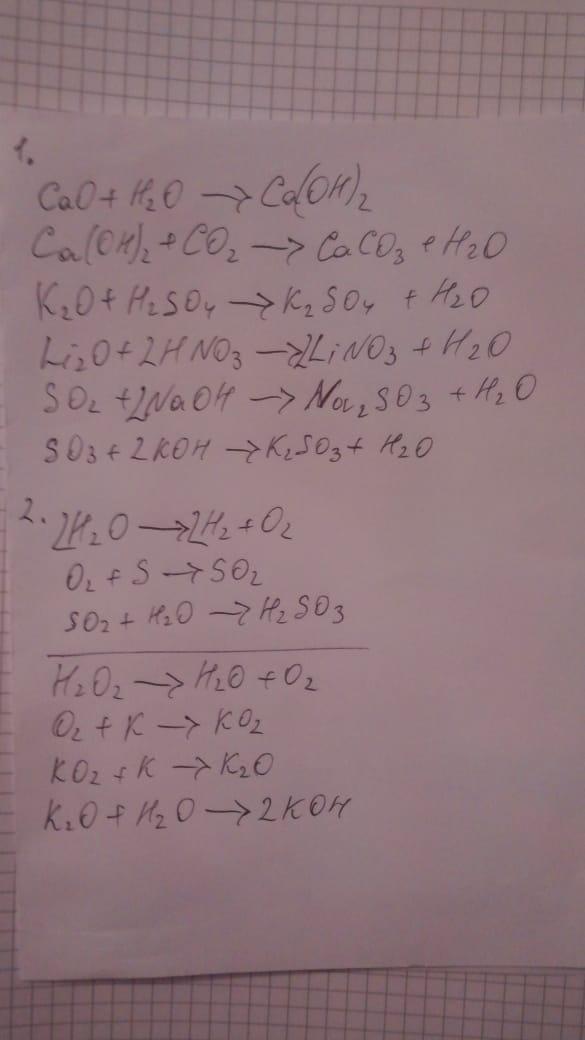 1.
CaO + H₂O → Ca(OH)₂
Ca(OH)₂ + CO₂ → CaCO₃ + H₂O
K₂O + H₂SO₄ → K₂SO₄ + H₂O
Li₂O + 2HNO₃ → 2LiNO₃ + H₂O
SO₂ + 2NaOH → Na₂SO₃ + H₂O
SO₃ + 2KOH → K₂SO₃ + H₂O
2. 2H₂O → 2H₂ + O₂
O₂ + S → SO₂
SO₂ + H₂O → H₂SO₃
H₂O₂ → H₂O + O₂
O₂ + K → KO₂
KO₂ + K → K₂O
K₂O + H₂O → 2KOH